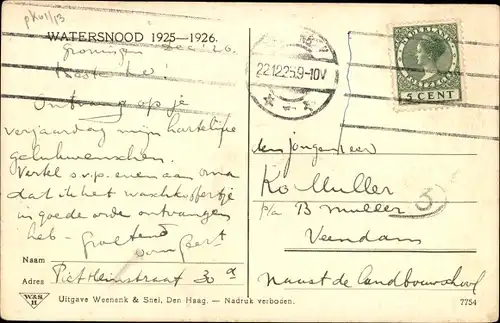 pkv1/13
WATERSNOOD 1925—1926.
Groningen Dec. 26.
Beste Ko!
Ontvang op je
verjaardag mijn hartelijke
gelukwenschen.
Vertel s.v.p. even aan oma
dat ik het waschkoffertje
in goede orde ontvangen
heb. Groetend
oom Geert
Naam
Adres Piet Heinstraat 30 a
W&S
H
Uitgave Weenenk & Snel, Den Haag. — Nadruk verboden.
22.12.25.9-10V
NEDERLAND
5 CENT
den jongeheer
Ko Muller
p/a B Muller
Veendam
naast de landbouwschool
5
7754